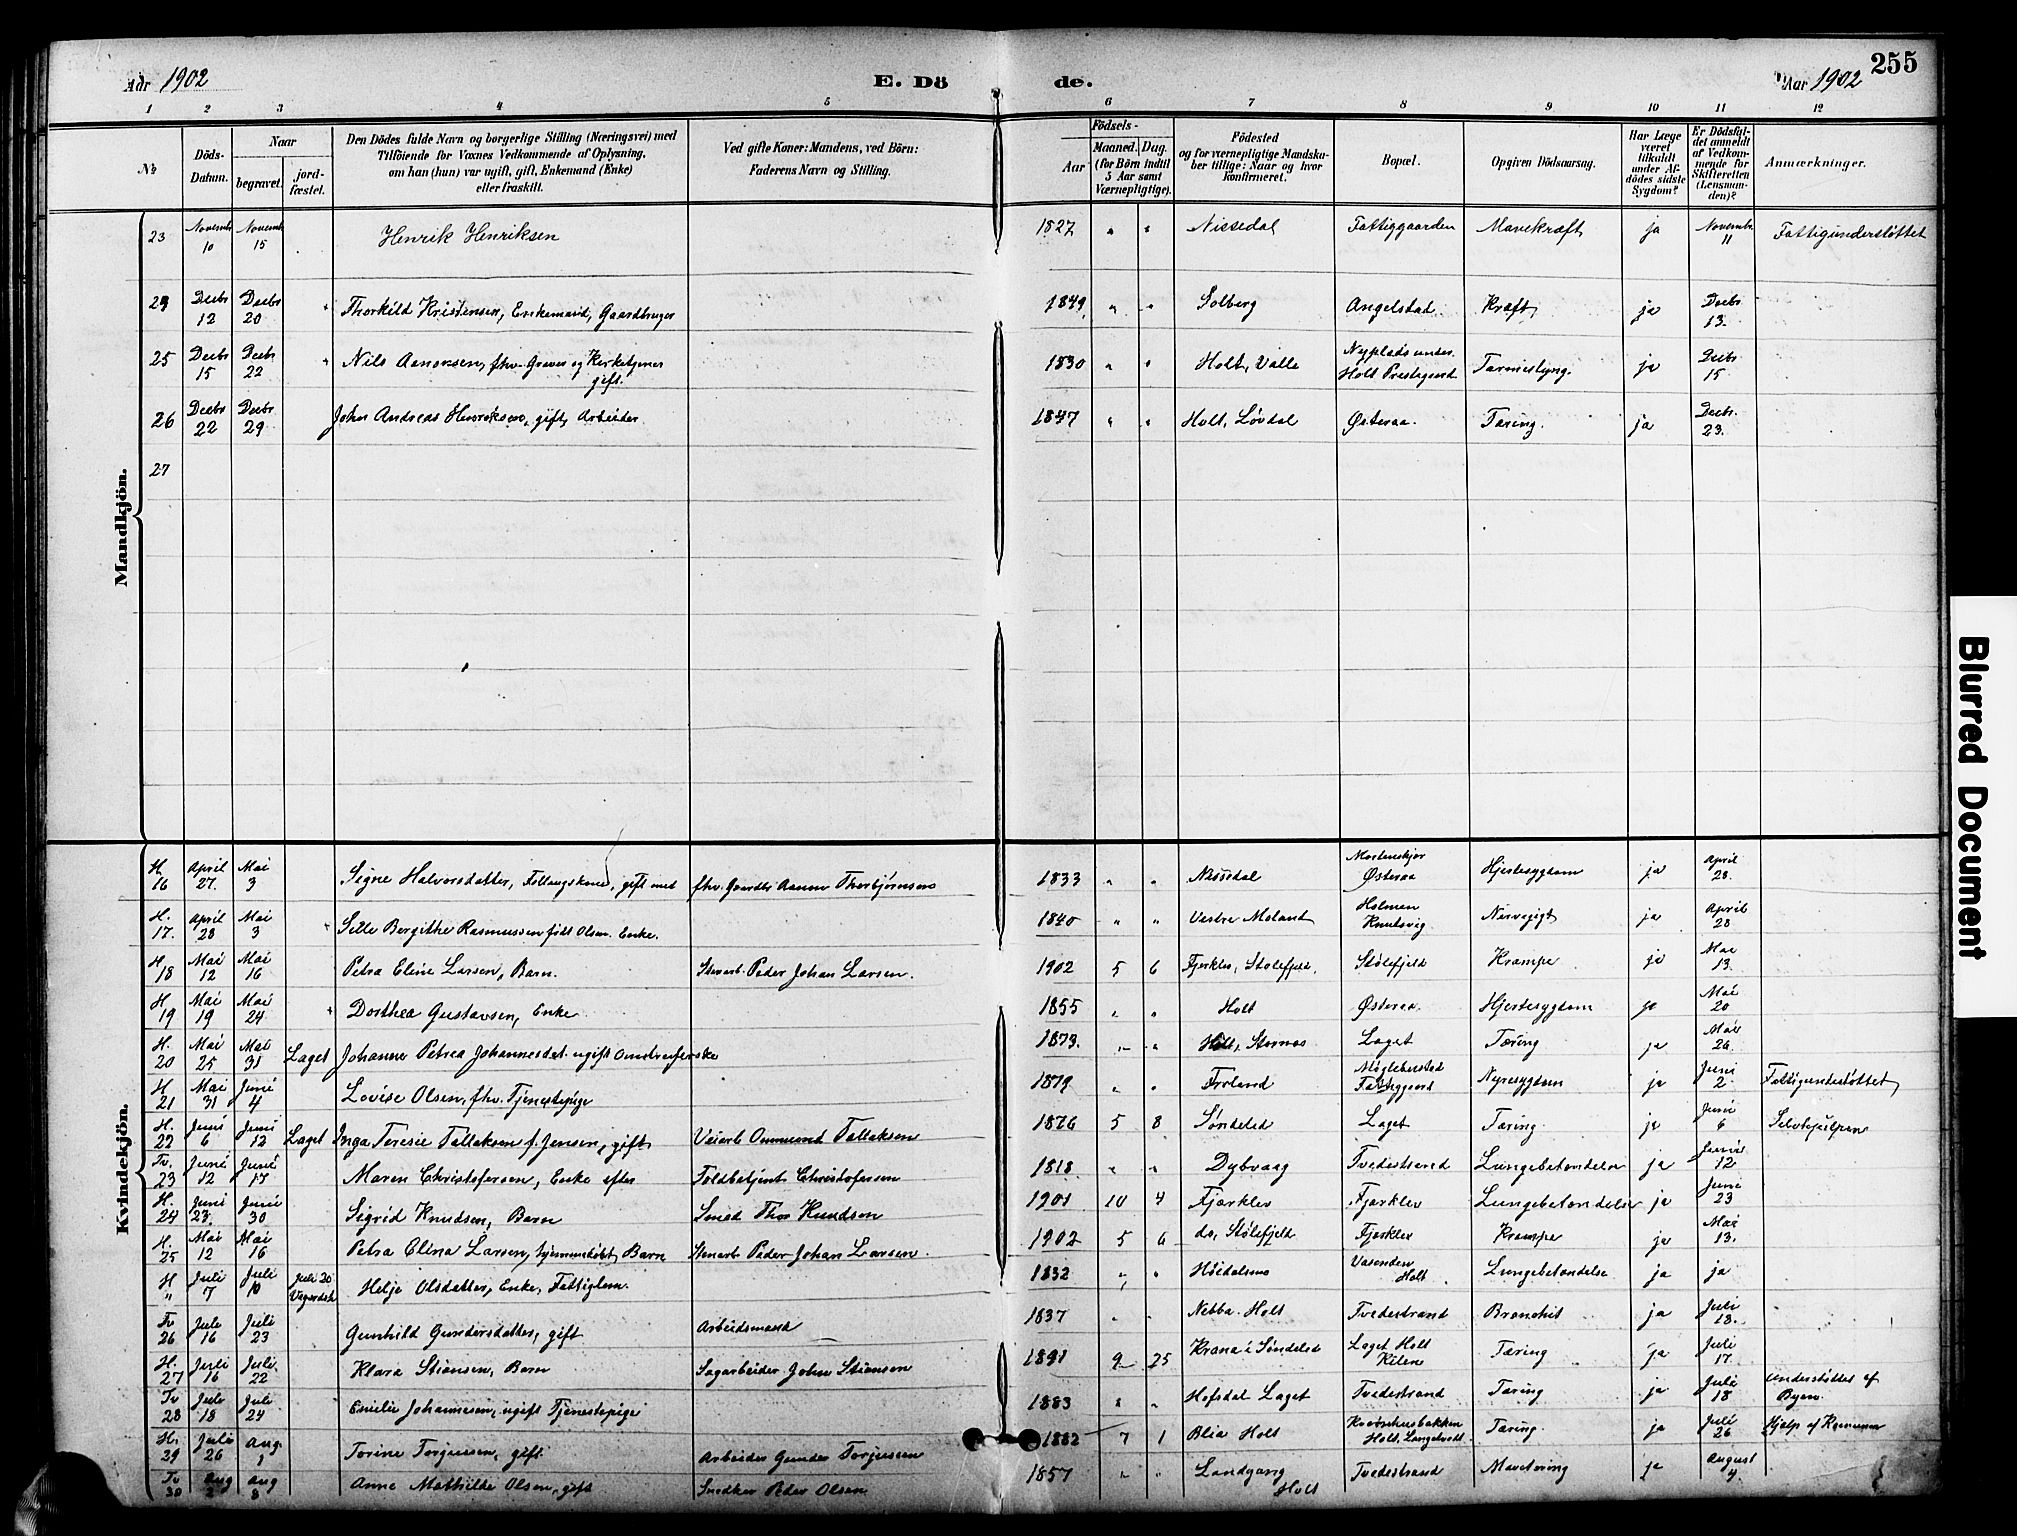 Aar 1902 E. Dö de. Aar 1902 255
1 2 3 4 5 6 7 8 9 10 11 12
No. Döds-Datum. Naar begravet. jord-fæstet. Den Dödes fulde Navn og borgerlige Stilling (Næringsvei) med Tilföiende for Voxnes Vedkommende af Oplysning, om han (hun) var ugift, gift, Enkemand (Enke) eller fraskilt. Ved gifte Koner: Mandens, ved Börn: Faderens Navn og Stilling. Födsels- Aar Maaned. Dag. (for Börn indtil 5 Aar samt Værnepligtige). Födested og for værnepligtige Mandskaber tillige: Naar og hvor konfirmeret. Bopæl. Opgiven Dödsaarsag. Har Læge været tilkaldt under Afdödes sidste Sygdom? Er Dödsfaldet anmeldt af Vedkommende for Skifteretten (Lensmanden)? Anmærkninger.
Mandkjön.
23 Novembr 10 Novembr 15 Henrik Henriksen 1827 " " Nissedal Fattiggaarden Mavekræft ja Novembr 11 Fattigunderstøttet
24 Decbr 12 Decbr 20 " Thorkild Kristensen, Enkemand, Gaardbruger 1849 " " Solberg Angelstad Kræft ja Decbr 13.
25 Decbr 15 Decbr 22 " Nils Aanonsen, fhv. Graver og Kirketjener gift. 1830 " " Holt, Valle Nyplads under Holt Prestegaard Tarmeslyng. ja Decbr 15
26 Decbr 22 Decbr 29 John Andreas Henriksen, gift, Arbeider 1847 " " Holt, Løvdal Østeraa. Tæring. ja Decbr. 23.
27
Kvindekjön.
H. 16 April 27. Mai 3 Signe Halvorsdatter, gift med fhv. Gaardbr Aanon Thorbjørnsens 1833 " " Nissedal Østeraa Hjertesygdom ja April 28.
H. 17. April 28 Mai 3 " Sille Birgithe Rasmussen født Olsen. Enke. 1840 " " Vestre Moland Holmen Knutsvig Nervegigt ja April 28
H. 18 Mai 12 Mai 16 Petra Eline Larsen, Barn. Stenarb. Peder Johan Larsen. 1902 5 6 Fjerklev, Stølefjeld, Stølefjeld Krampe ja Mai 13.
H. 19 Mai 19 Mai 24 " Dorthea Gustavsen, Enke. 1855 " " Holt Østeraa. Hjertesygdom ja Mai 20
H. 20 Mai 25 Mai 31 Laget Johanne Petrea Johannesdat. ugift 1873. " " Holt, Stornæs Laget Tæring ja Mai 26.
H 21 Mai 31 Juni 4 Lovise Olsen, fhv. Tjenestepige 1879 " " Froland Møglebusted Fattiggaard Nyresygdom ja Juni 2 Fattigunderstøttet
H. 22 Juni 6 Juni 12 Laget Inga Teresie Tallaksen f. Jensen, gift Veiarb. Ommund Tallaksen 1876 5 8 Søndeled Laget Tæring. ja Juni 6 Selvhjulpen
Tv. 23 Juni 12 Juni 17 Maren Christofersen, Enke efter Toldbetjent Christofersen 1818 " " Dybvaag Tvedestrand Lungebetændelse ja Juni 12
H. 24 Juni 23. Juni 30 Sigrid Knudsen, Barn Smed Thor Knudsen 1901 10 4 Fjærklev Fjærklev Lungebetændelse ja Juni 23
H. 25 Mai 12 Mai 16 Petra Elina Larsen, hjemmedøbt Barn Stenarb. Peder Johan Larsen. 1902 5 6 do, Stølefjeld Fjærklev Krampe ja Mai 13.
H " Juli 7 Juli 10 Juli 20 Vegardsh. Helje Olsdatter, Enke, Fattiglem. 1832 " " Høidalsmo Vasenden Holt Lungebetændelse ja ja
Tv 26 Juli 16 Juli 23 Gunhild Gundersdatter, gift Arbeidsmand 1837 " " Nebba. Holt Tvedestrand Bronchit ja Juli 18.
H. 27 Juli 16 Juli 22 Klara Stiansen, Barn Sagarbeider John Stiansen 1891 9 25 Krana i Søndeled Laget Holt Kilen Tæring ja Juli 17.
Tv 28 Juli 18 Juli 24 Emelie Johannesen, ugift Tjenestepige 1883 " " Hofsdal Laget Tvedestrand Tæring ja Juli 18 Understøttet af Byen.
H. 29 Juli 26 Aug. 1 Torine Torgersen, gift Arbeider Gunder Torjussen 1882 7 1 Blia Holt Tæring. ja Juli 26 Hjælp af Kommunen
Tv 30 Aug 2 Aug 8 Anne Mathilde Olsen, gift Snedker Peder Olsen 1857 " " Landgang Holt Tvedestrand Mavetæring ja August 4.
Blurred Document